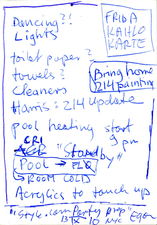 Dancing?!
Lights
FRIDA
KAHLO
KARTE
toilet paper?
towels?
Cleaners
Bring home
214 painting
Hams: 214 update
pool heating start
9 pm
CRI
"Standby"
POOL → FLX
→ ROOM COLD
Acrylics to touch up
"Style.com Party prep"
10 NYC